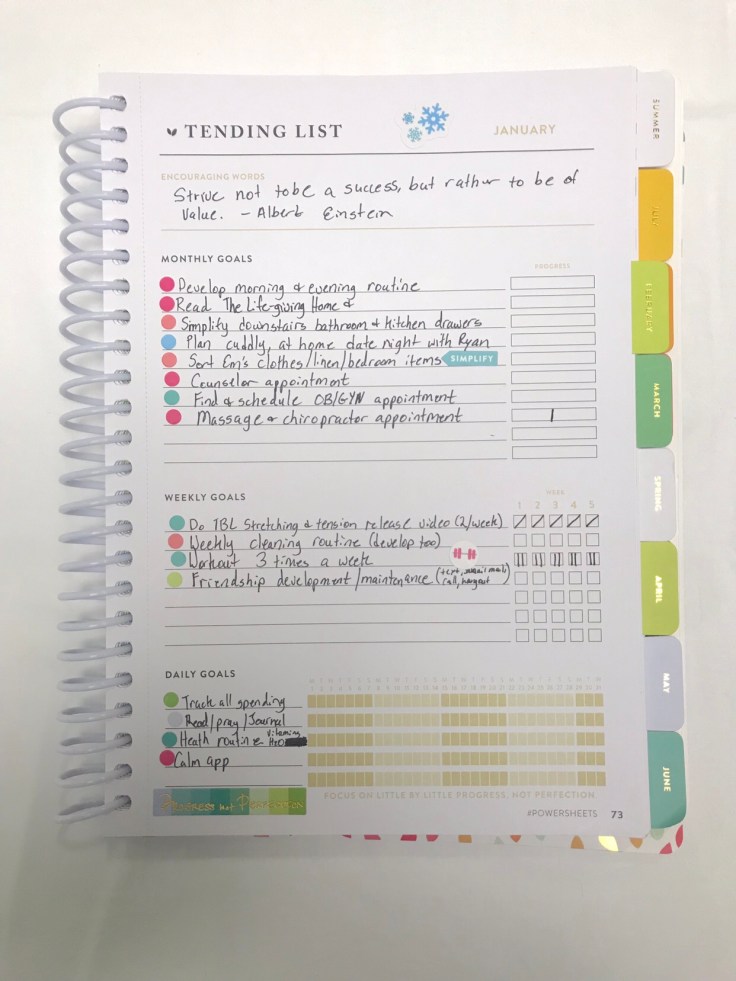 TENDING LIST
JANUARY
ENCOURAGING WORDS
Strive not to be a success, but rather to be of
value. - Albert Einstein
MONTHLY GOALS
PROGRESS
Develop morning & evening routine
Read The Life-giving Home &
Simplify downstairs bathroom & kitchen drawers
Plan cuddly, at home date night with Ryan
Sort Em's clothes/linen/bedroom items SIMPLIFY
Counselor appointment
Find & schedule OB/GYN appointment
Massage & chiropractor appointment
WEEKLY GOALS
WEEK
1 2 3 4 5
Do TBL Stretching & tension release video (2/week)
Weekly cleaning routine (develop too)
Workout 3 times a week
Friendship development/maintenance (text, snail mail,
call, hangout)
DAILY GOALS
Track all spending
Read/pray/Journal
Heath routine vitamins
H2O
Calm app
PROGRESS not PERFECTION
FOCUS ON LITTLE BY LITTLE PROGRESS, NOT PERFECTION.
#POWERSHEETS 73
SUMMER
JULY
FEBRUARY
MARCH
SPRING
APRIL
MAY
JUNE